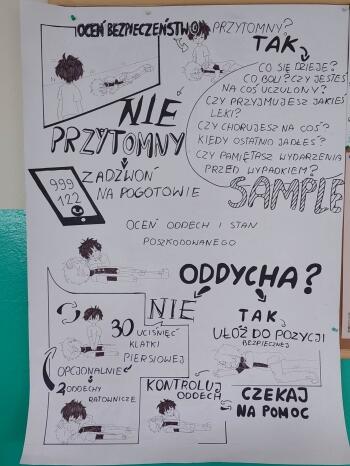 OCEŃ BEZPIECZEŃSTWO
PRZYTOMNY?
TAK
CO SIĘ DZIEJE?
CO BOLI? CZY JESTEŚ
NA COŚ UCZULONY?
CZY PRZYJMUJESZ JAKIEŚ
LEKI?
CZY CHORUJESZ NA COŚ?
KIEDY OSTATNIO JADŁEŚ?
CZY PAMIĘTASZ WYDARZENIA
PRZED WYPADKIEM?
SAMPLE
NIE
PRZYTOMNY
999
122
ZADZWOŃ
NA POGOTOWIE
OCEŃ ODDECH I STAN
POSZKODOWANEGO
ODDYCHA?
NIE
30 UCIŚNIĘĆ
KLATKI
PIERSIOWEJ
OPCJONALNIE
2 ODDECHY
RATOWNICZE
TAK
UŁÓŻ DO POZYCJI
BEZPIECZNEJ
KONTROLUJ
ODDECH
CZEKAJ
NA POMOC